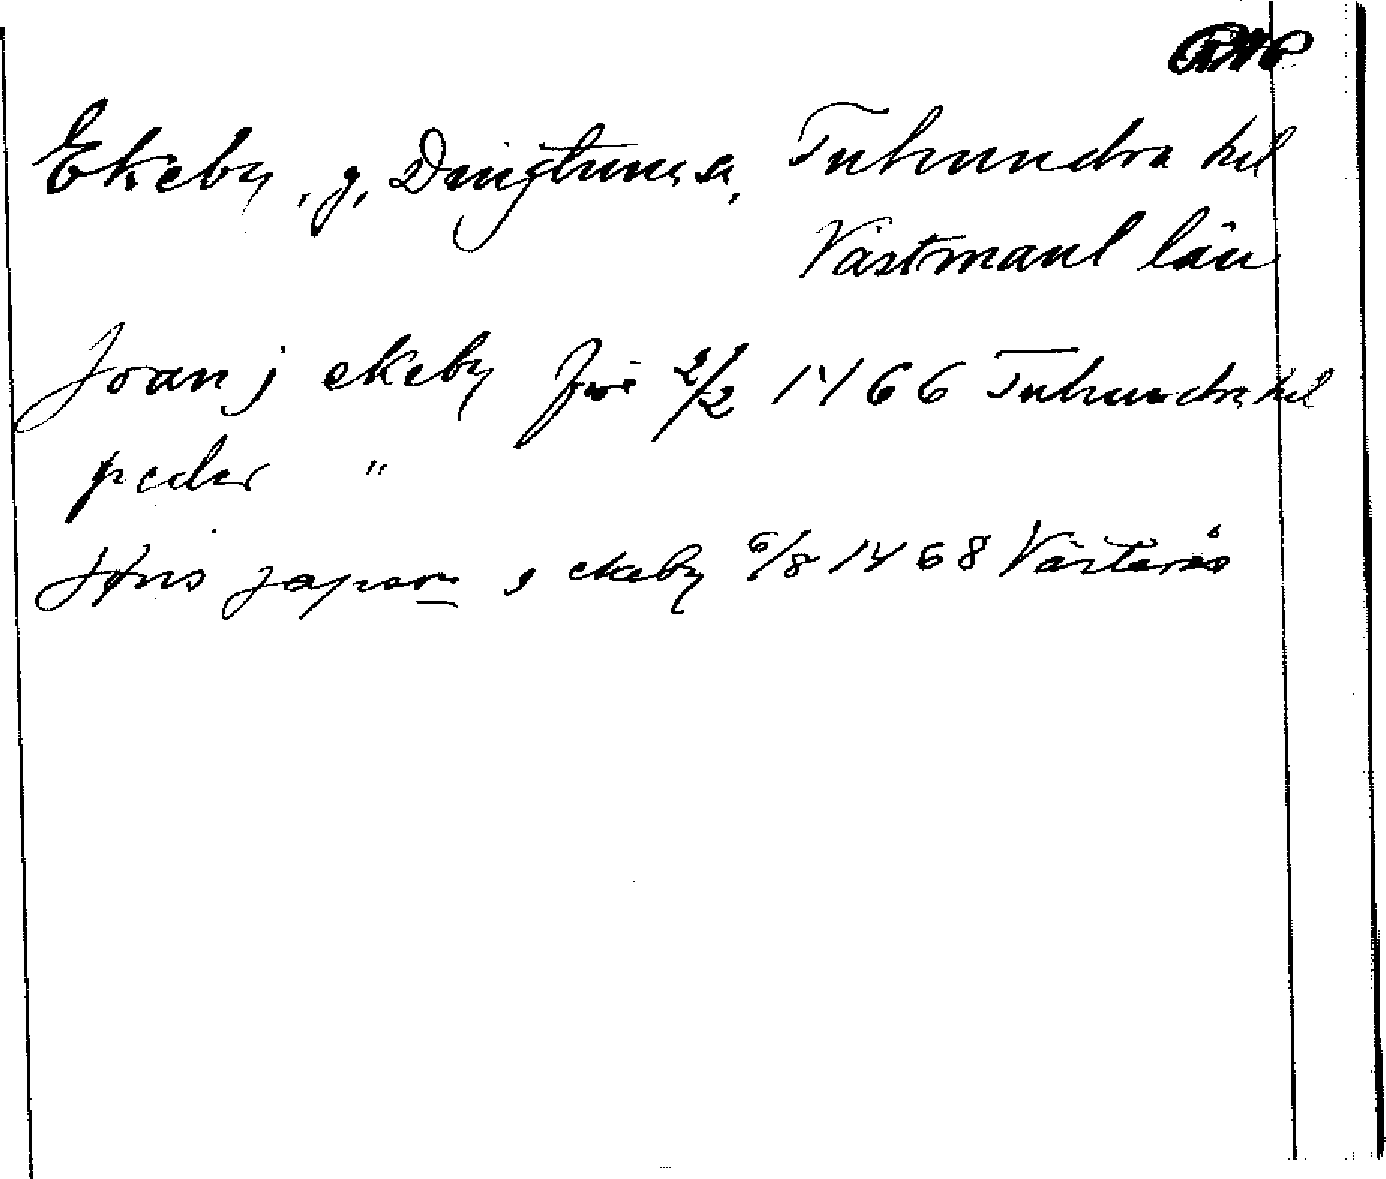 Ekeby, g, Dingtuna s, Tuhundra hd
Västmanl län
Joan j ekeby före 2/2 1466 Tuhundra hd
peder "
Jöns japson i ekeby 6/8 1468 Västerås